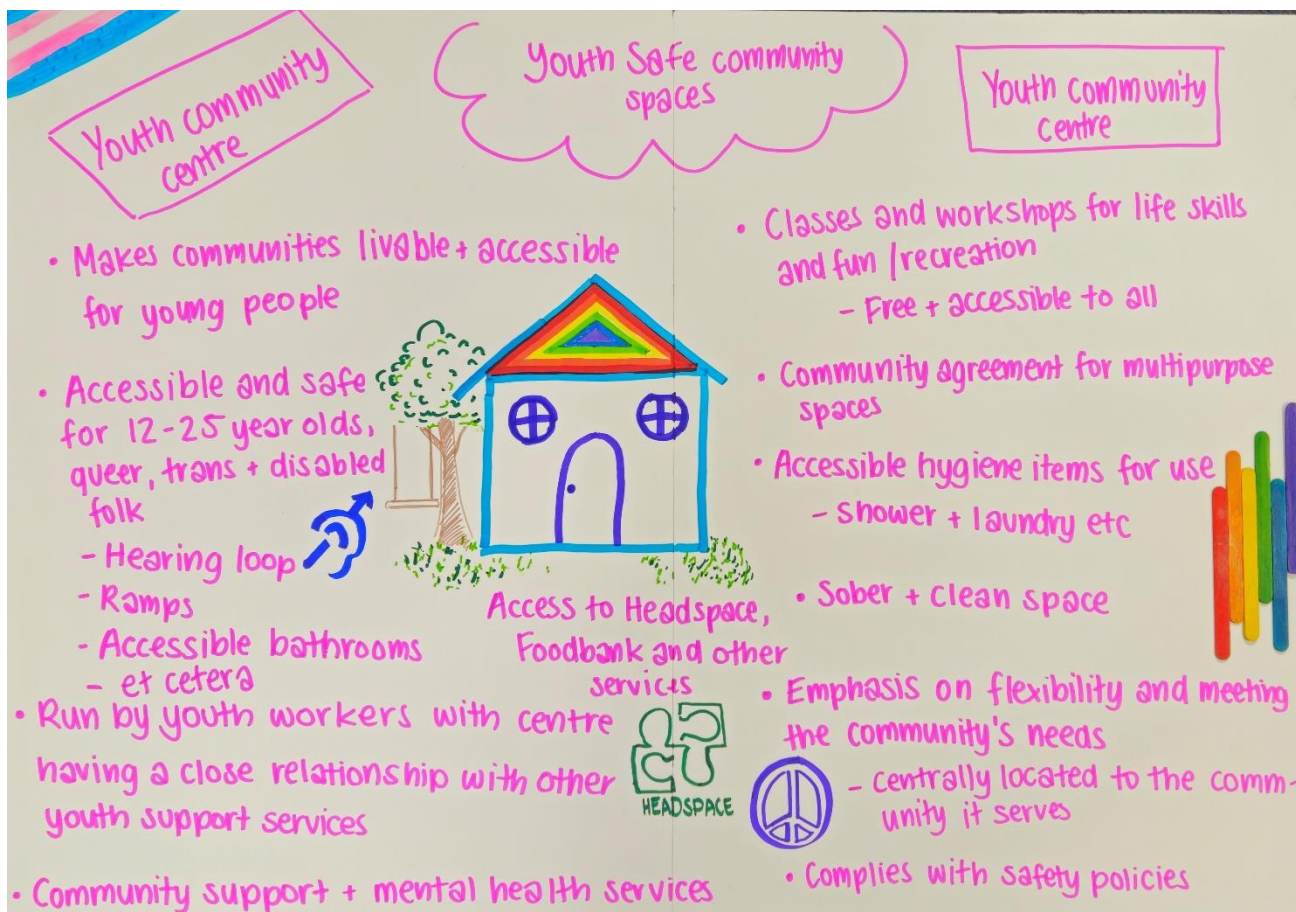 Youth community
centre
Youth Safe community
spaces
Youth community
centre
• Makes communities livable + accessible
for young people
• Accessible and safe
for 12-25 year olds,
queer, trans + disabled
folk
- Hearing loop
- Ramps
- Accessible bathrooms
- et cetera
• Run by youth workers with centre
having a close relationship with other
youth support services
• Community support + mental health services
Access to Headspace,
Foodbank and other
services
HEADSPACE
• Classes and workshops for life skills
and fun / recreation
- Free + accessible to all
• Community agreement for multipurpose
spaces
• Accessible hygiene items for use
- shower + laundry etc
• Sober + clean space
• Emphasis on flexibility and meeting
the community's needs
- centrally located to the comm-
unity it serves
• Complies with safety policies